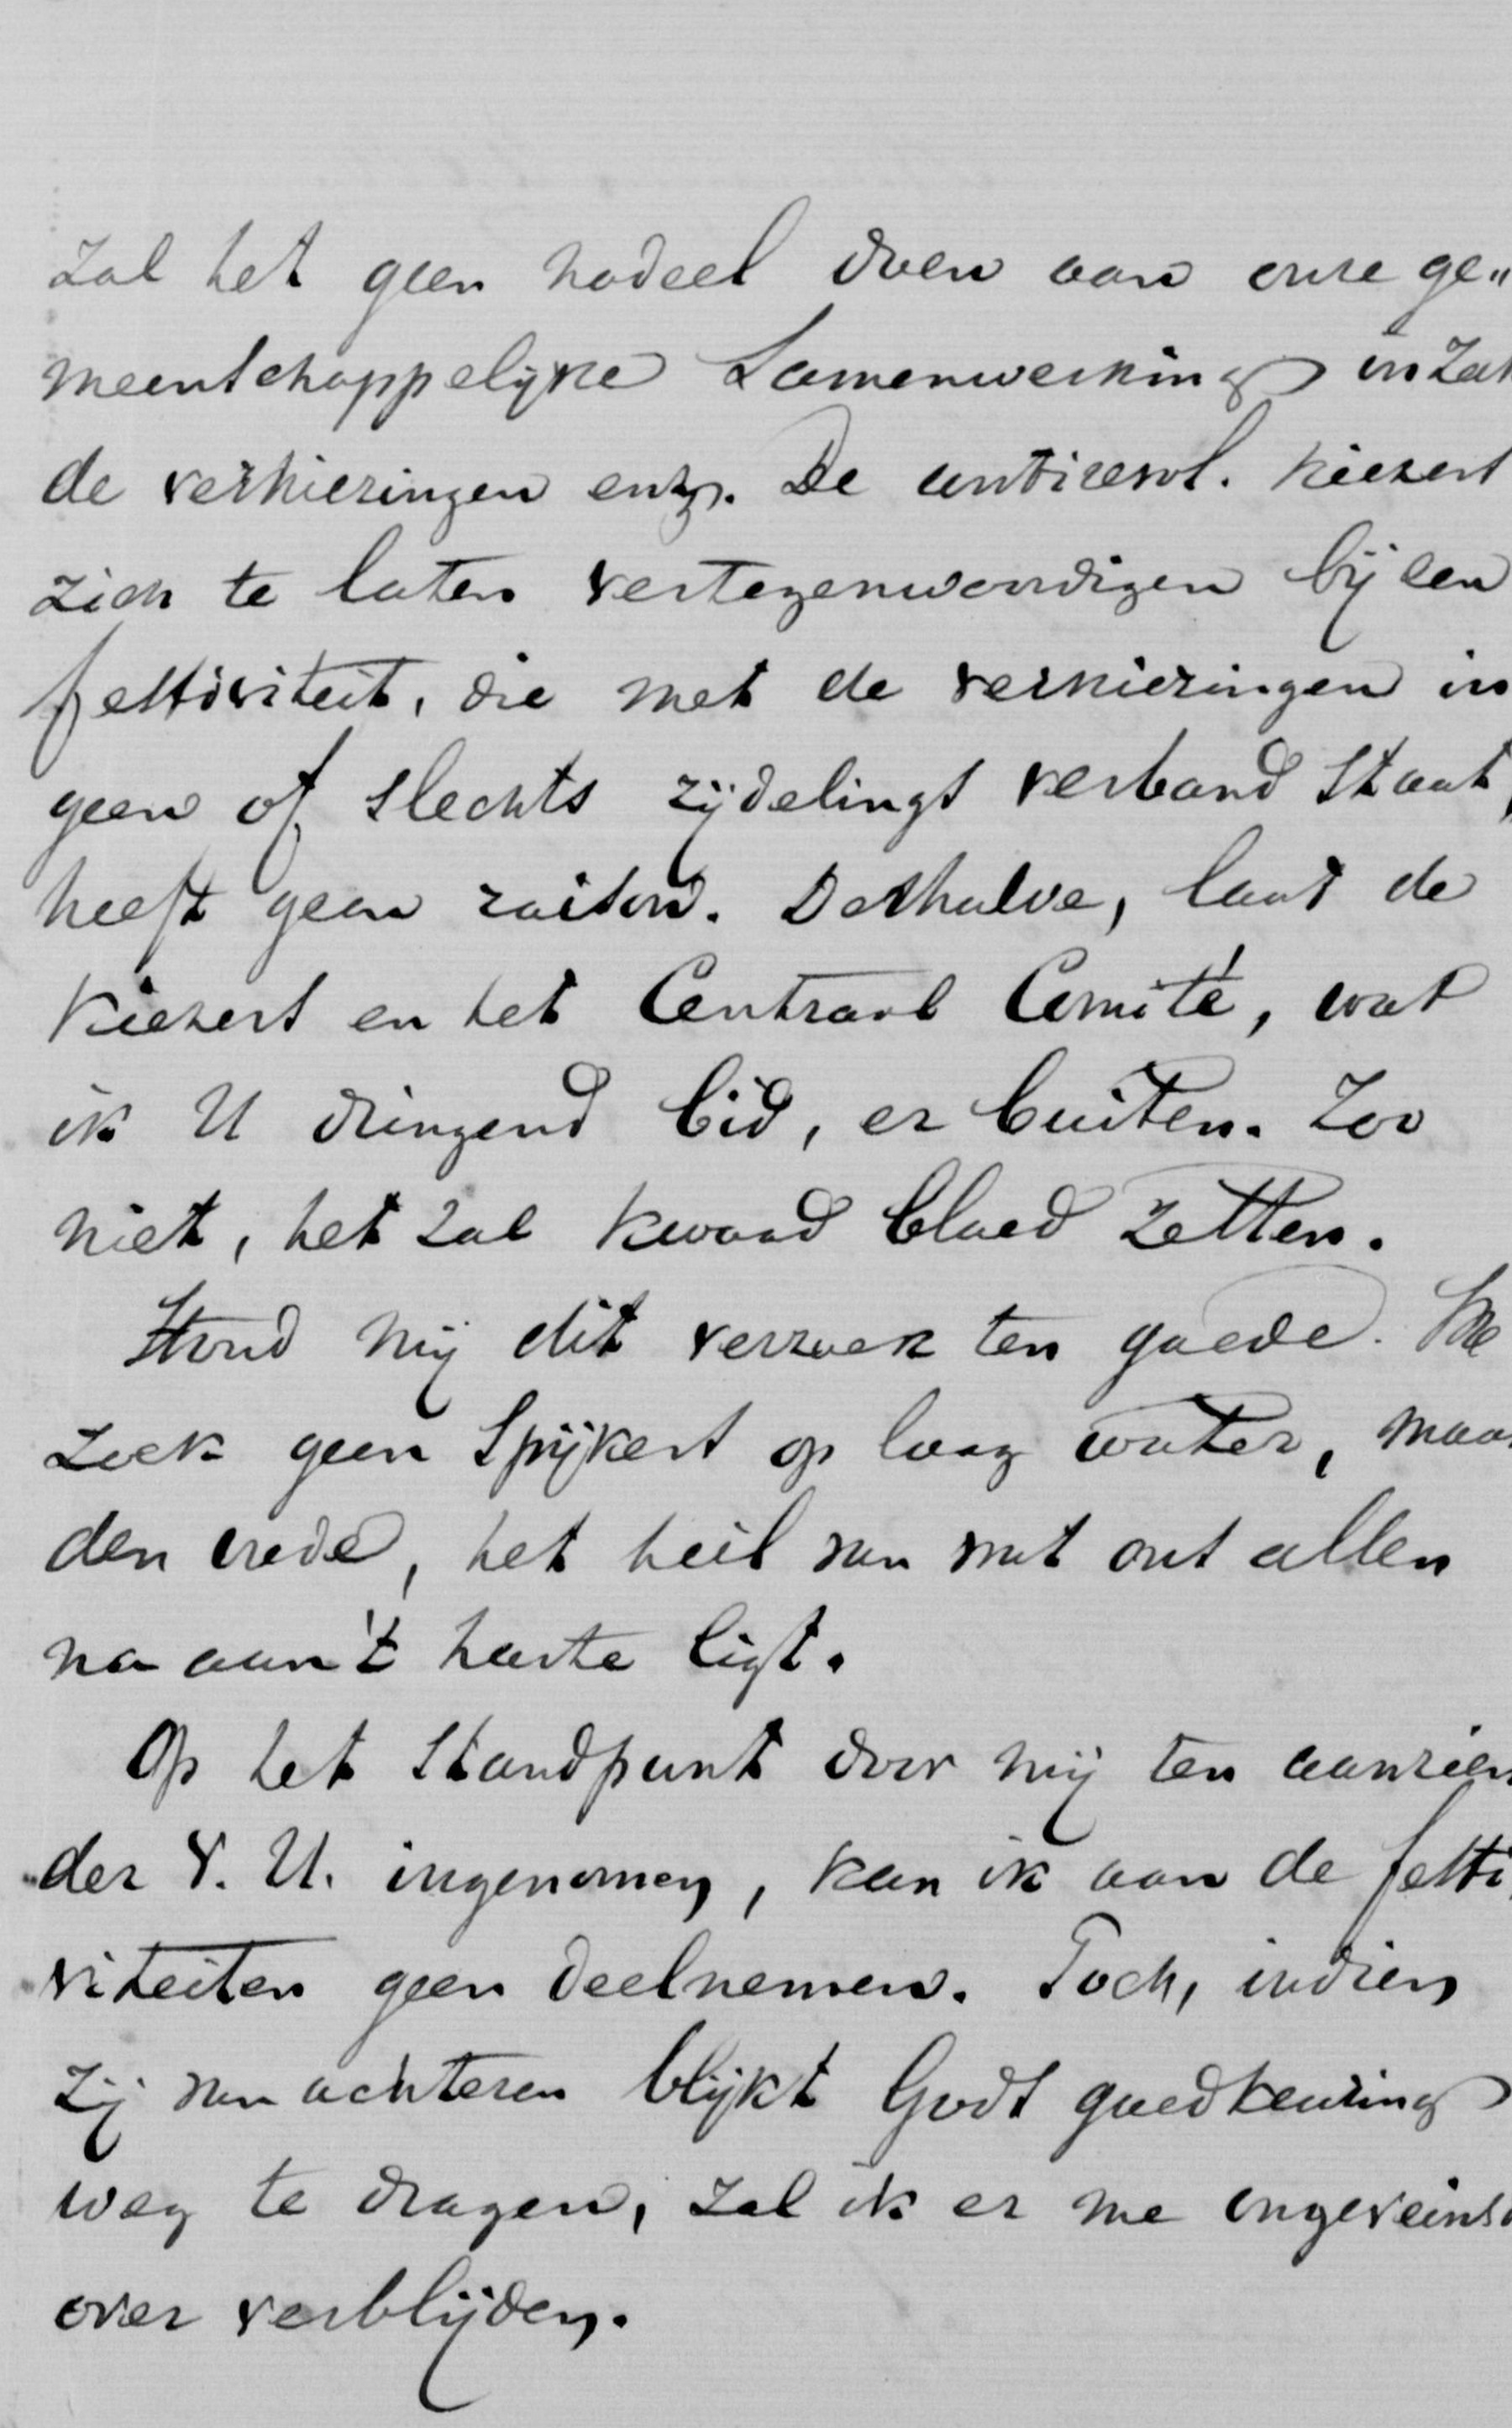 zal het geen nadeel doen aan onze ge„
meentschappelijke samenwerking in zak
de verkiezingen enz. De antirevol. kiezers
zich te laten vertegenwoordigen bij een
festiviteit, die met de verkiezingen in
geen of slechts zijdelings verband staat,
heeft geen raison. Deshalve, laat de
kiezers en het Centraal Comité, wat
ik U dringend bid, er buiten. Zoo
niet, het zal kwaad bloed zetten.
Houd mij dit verzoek ten goede. Ik
zoek geen spijkers op laag water, maar
den vrede, het heil van wat ons allen
na aan 't harte ligt.
Op het standpunt door mij ten aanzien
der V. U. ingenomen, kan ik aan de festi
viteiten geen deelnemen. Toch, indien
zij van achteren blijkt Gods goedkeuring
weg te dragen, zal ik er me ongeveinsd
over verblijden.